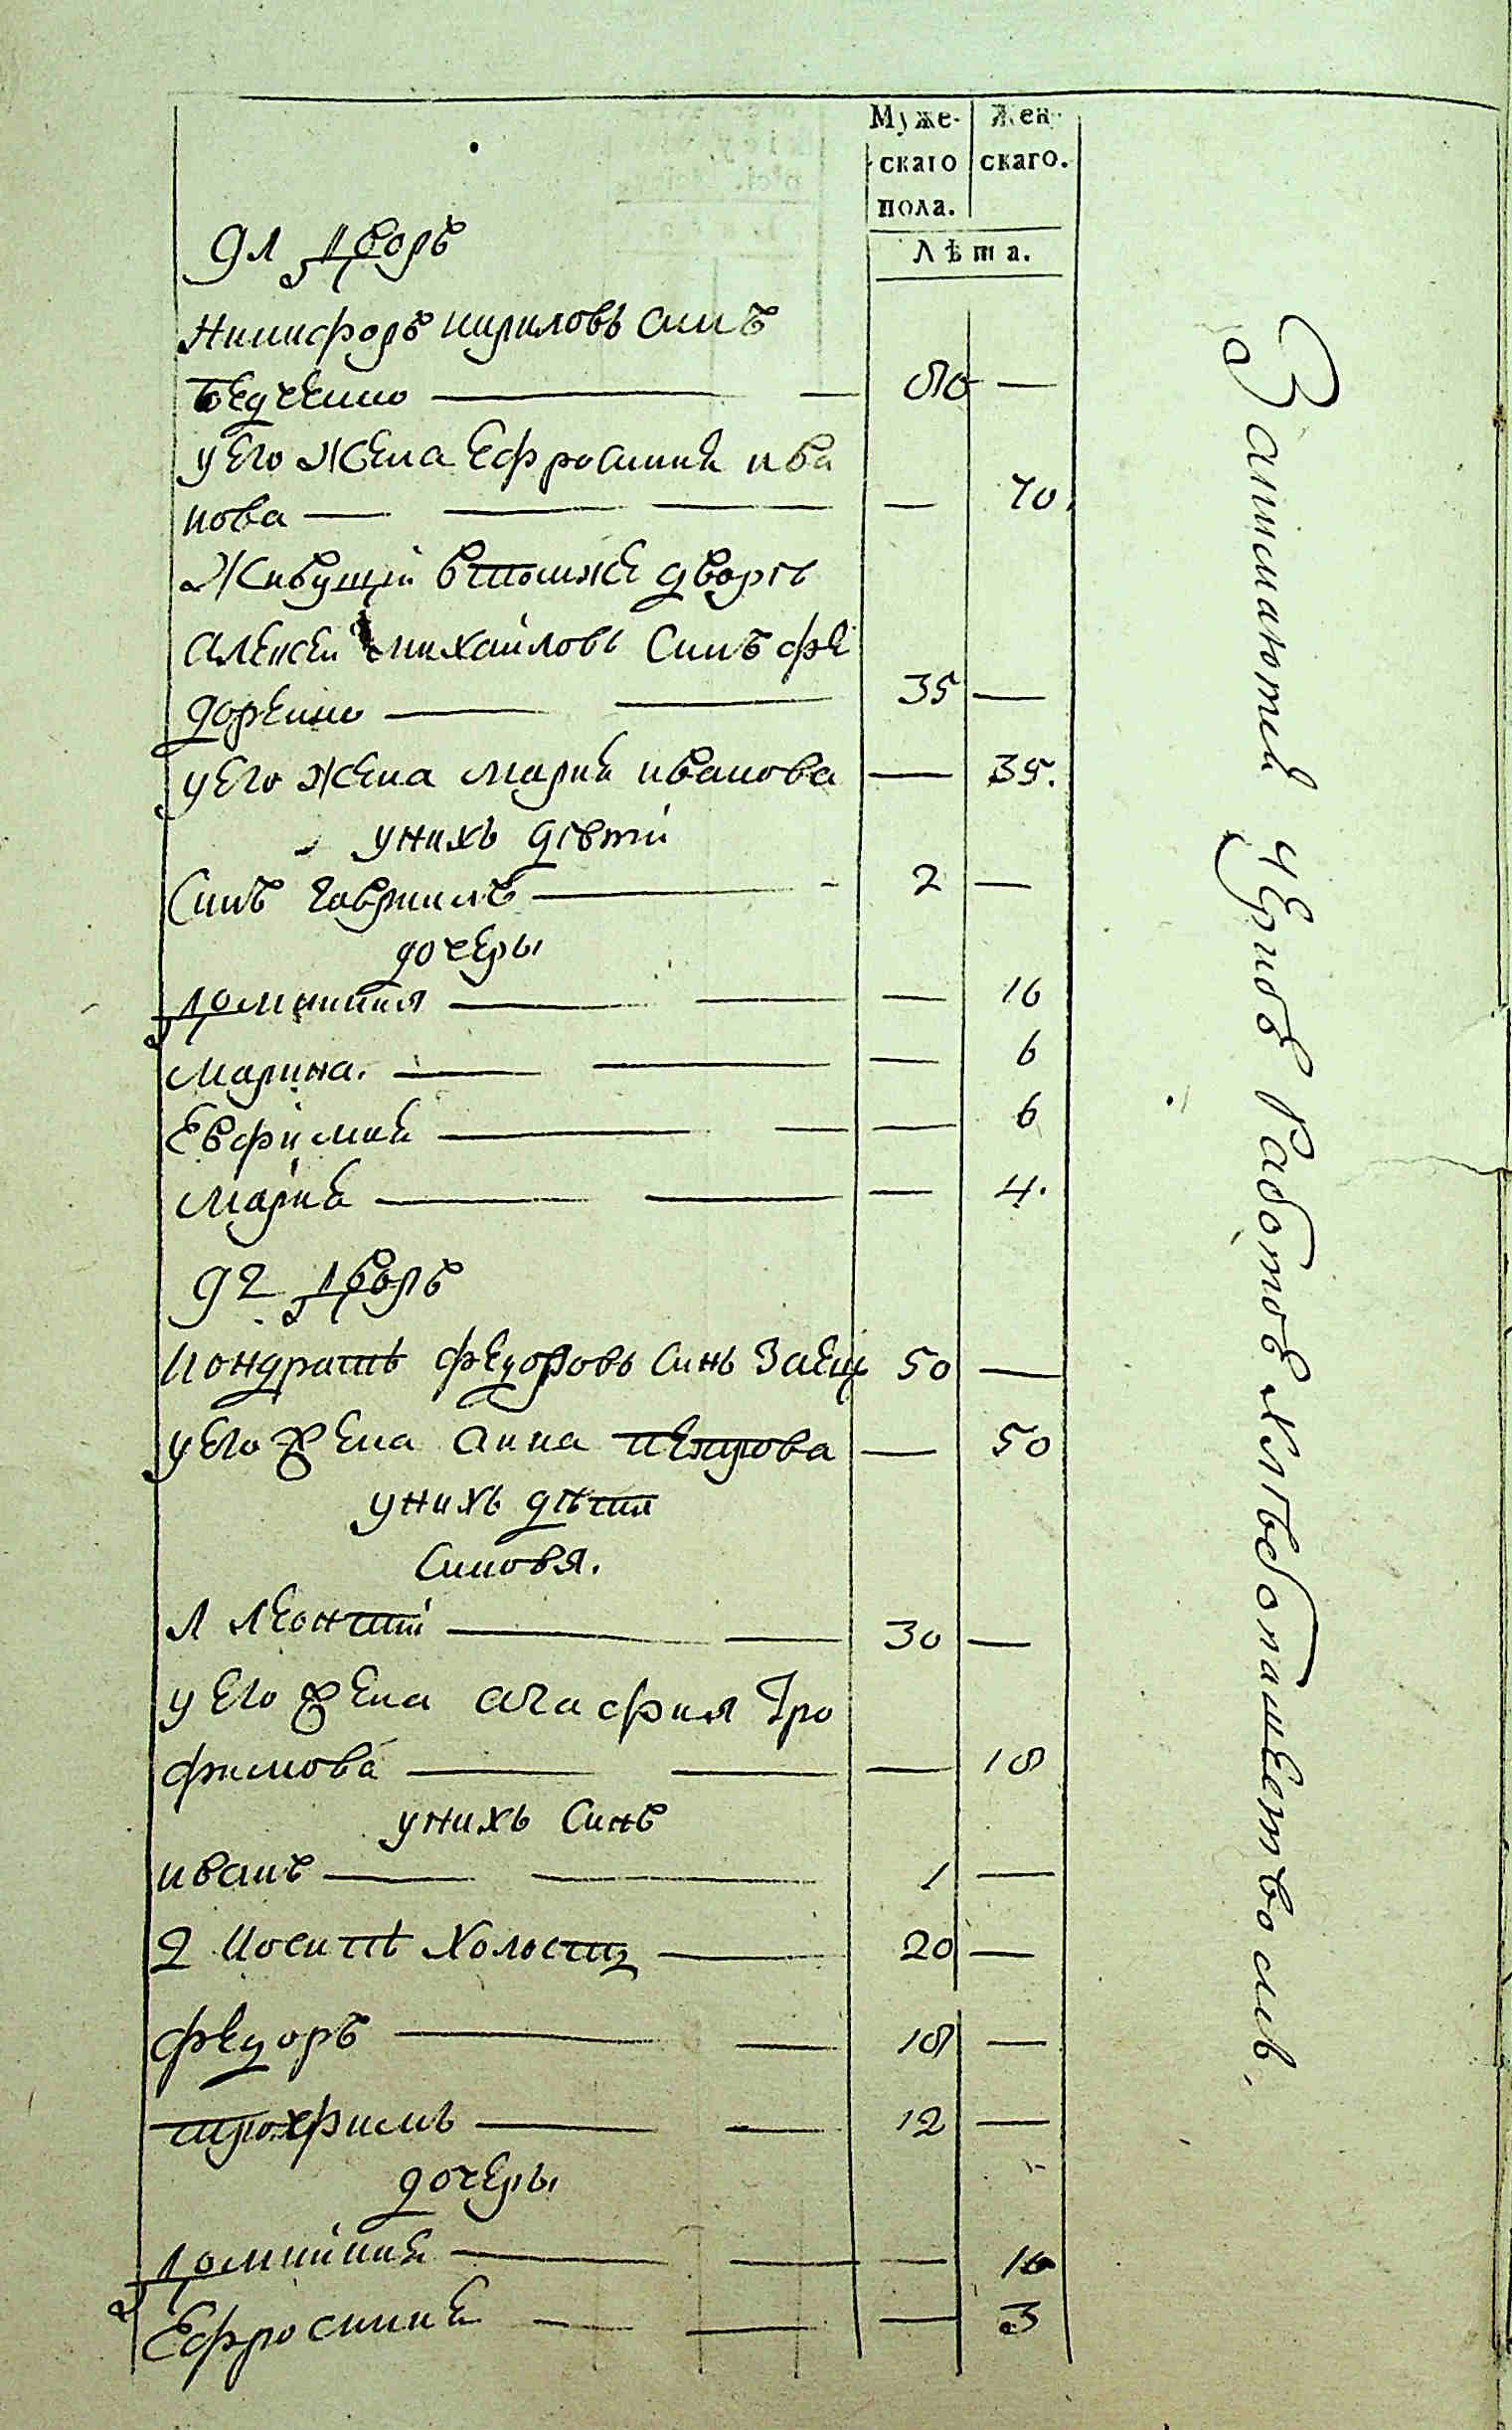 Муже- Жен-
скаго скаго.
пола.
Лѣта.
91 Дворъ
Никифоръ кириловъ синъ
Бедченко — 80 —
у его жена Ефросиния ива
нова — — 70.
Живущии втомже дворѣ
Алексеи михаиловъ Синъ фе
доренко — 35 —
у его жена мария иванова — 35.
у нихъ дѣти
Синъ гавриилъ — 2 —
дочеры
Домникия — — 16
Марина. — — 6
Евфимия — — 6
Мария — — 4.
92 Дворъ
Кондратъ федоровъ Синъ Заец 50 —
у его жена анна петрова — 50
у нихъ дѣти
Синовя.
1 леонтий — 30 —
у его жена агафия Тро
фимова — — 18
у нихъ Синъ
иванъ — 1 —
2 Иосипъ Холостъ — 20 —
федоръ — 18 —
трохфимъ — 12 —
дочеры
Домникия — — 16
Ефросиния — — 3
Занимаются чериов работов и хлѣбопашеством.